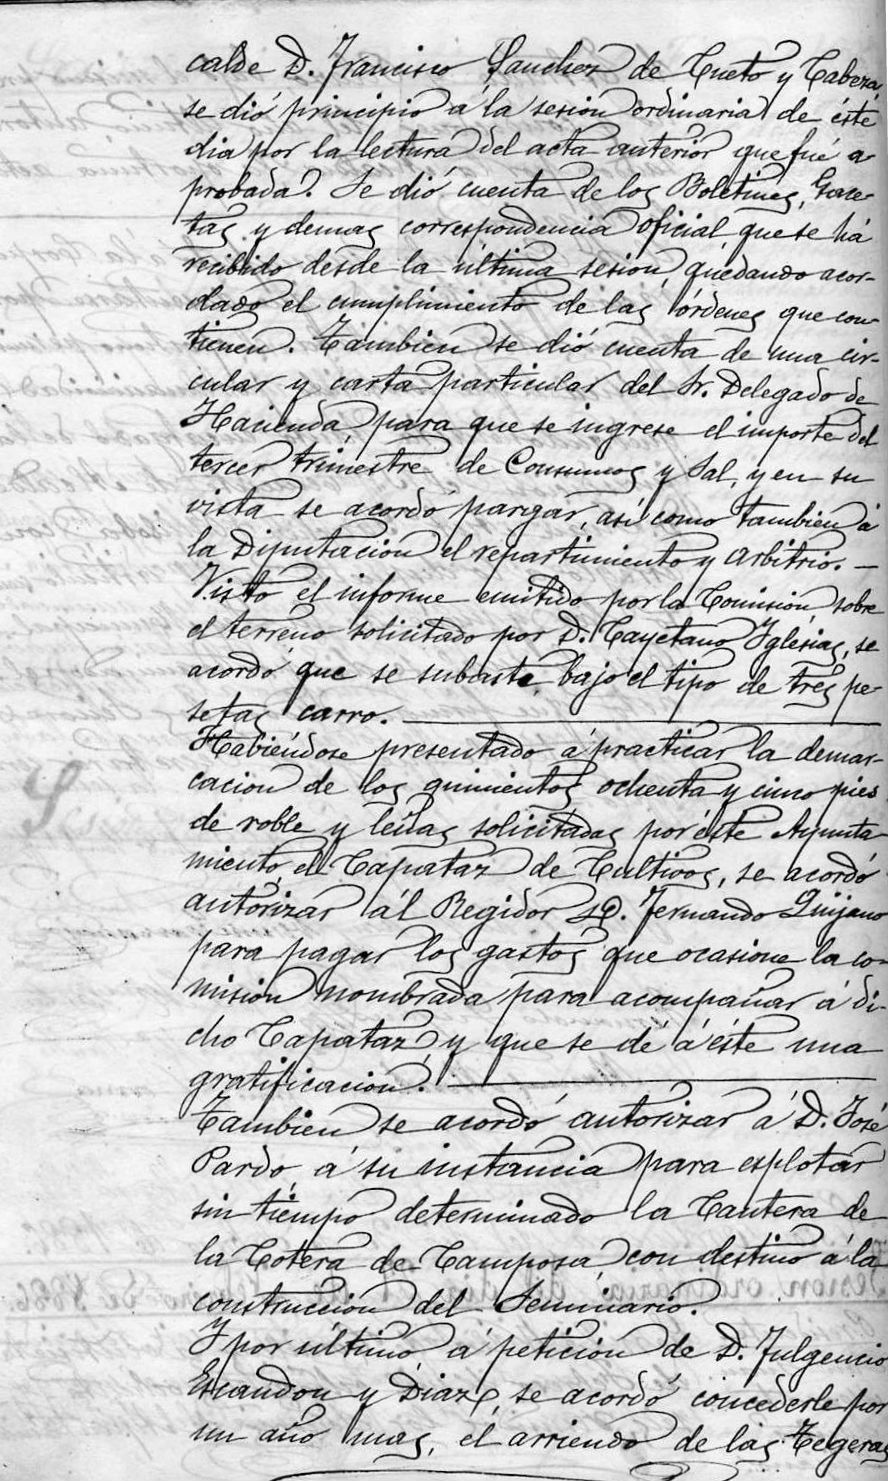 calde D. Francisco Sanchez de Cueto y Cabeza,
se dió principio á la sesion ordinaria de éste
dia por la lectura del acta anterior que fué a-
probada. Se dió cuenta de los Boletines, Gace-
tas y demas correspondencia oficial que se há
recibido desde la última sesion, quedando acor-
dado el cumplimiento de las órdenes que con-
tienen. Tambien se dió cuenta de una cir-
cular y carta particular del Sr. Delegado de
Hacienda para que se ingrese el importe del
tercer trimestre de Consumos y Sal, y en su
vista se acordó pargar, asi como tambien á
la Diputacion el repartimiento y arbitrio. —
Visto el informe emitido por la Comision sobre
el terreno solicitado por D. Cayetano Iglésias, se
acordó que se subaste bajo el tipo de tres pe-
setas carro. —
Habiéndose presentado á practicar la demar-
cacion de los quinientos ochenta y cinco pies
de roble y leñas solicitadas por éste Ayunta-
miento, el Capataz de Cultivos, se acordó
autorizar ál Regidor D. Fernando Quijano
para pagar los gastos que ocasione la co-
mision nombrada para acompañar á di-
cho Capataz y que se dé á éste una
gratificacion. —
Tambien se acordó autorizar á D. José
Pardo á su instancia para esplotar
sin tiempo determinado la Cantera de
la Cotera de Camposa con destino á la
construccion del Seminario.
Y por último á peticion de D. Fulgencio
Escandon y Diaz, se acordó concederle por
un año mas, el arriendo de las Tegeras